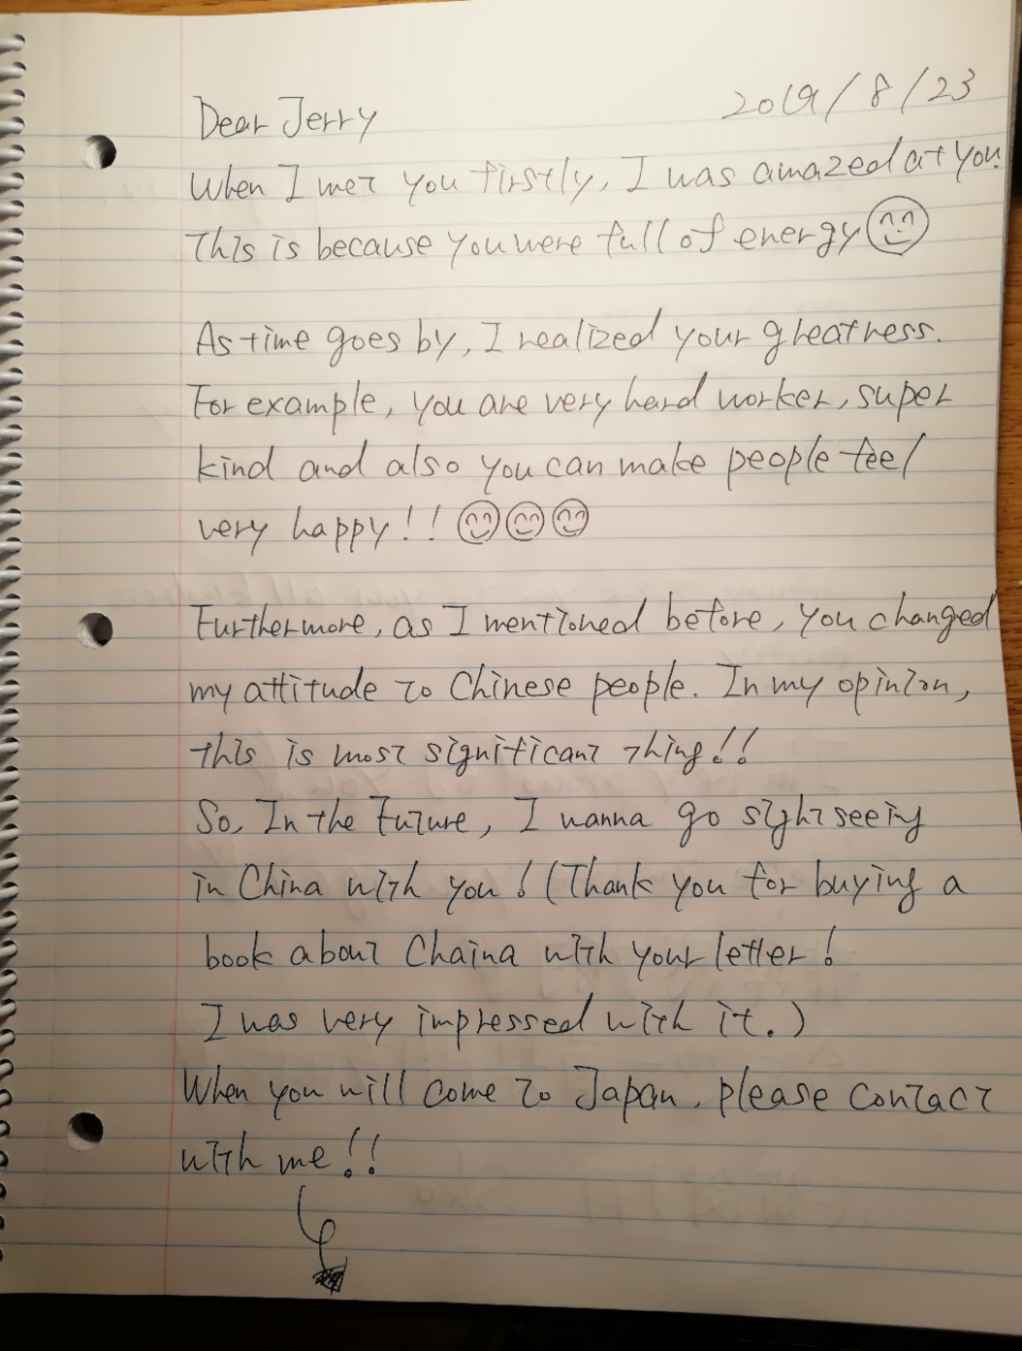 2019/8/23
Dear Jerry
When I met you firstly, I was amazed at you.
This is because you were full of energy
As time goes by, I realized your greatness.
For example, you are very hard worker, super
kind and also you can make people feel
very happy!!
Furthermore, as I mentioned before, you changed
my attitude to Chinese people. In my opinion,
this is most significant thing!!
So, In the Future, I wanna go sightseeing
in China with you! (Thank you for buying a
book about Chaina with your letter!
I was very impressed with it.)
When you will come to Japan, please contact
with me!!